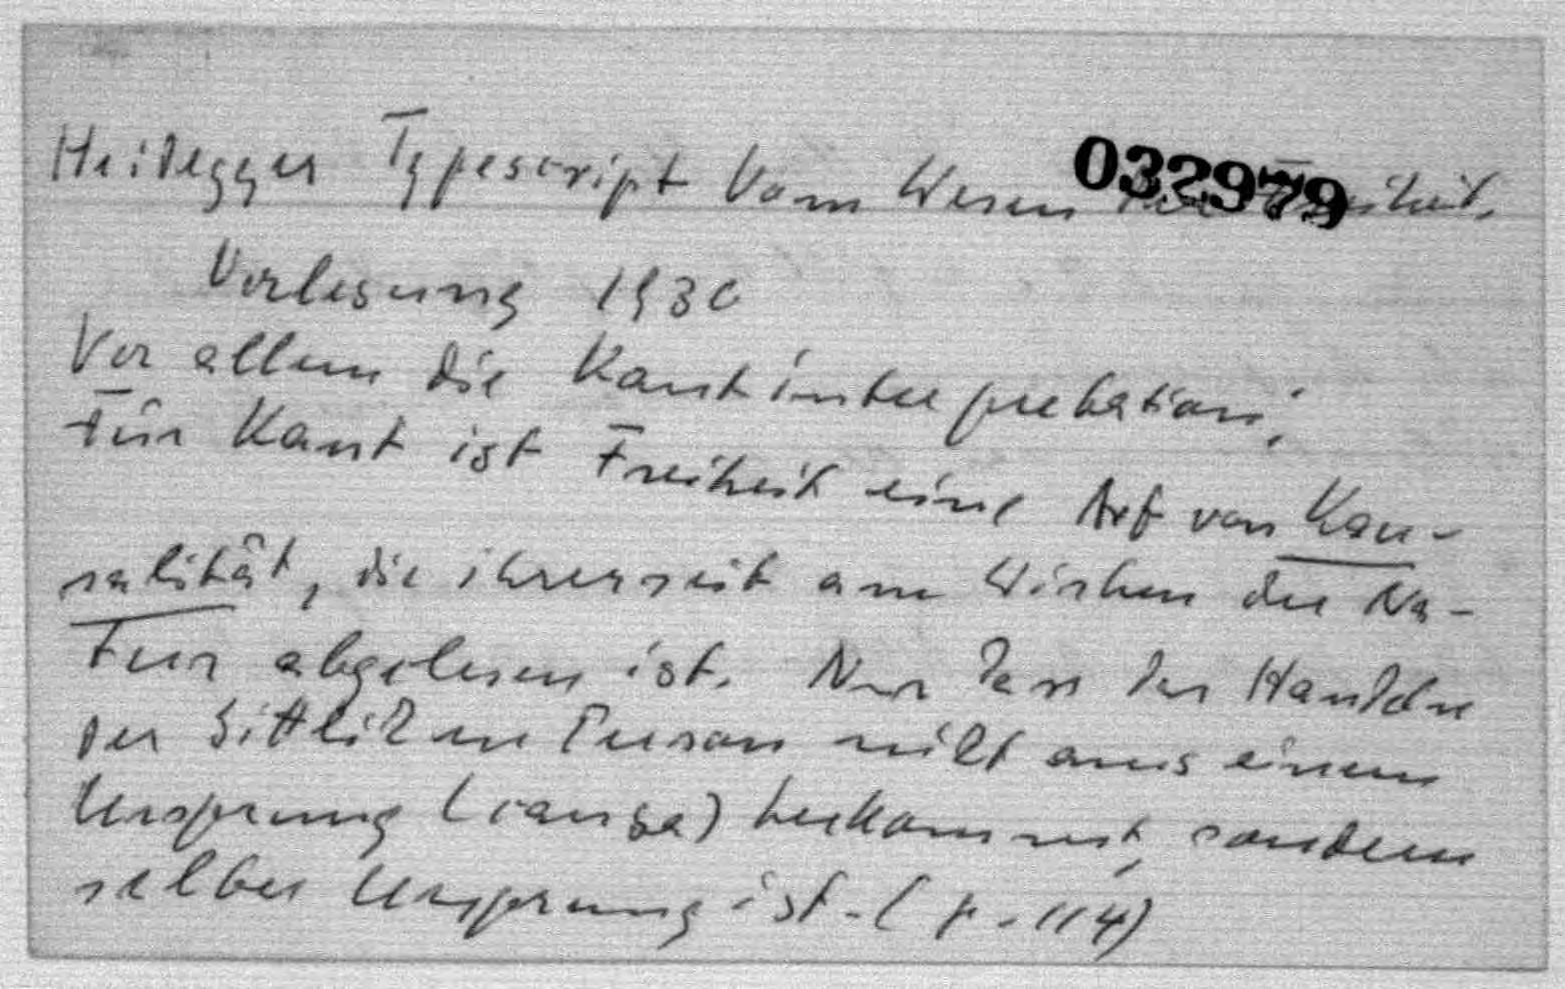 Heidegger Typescript Vom Wesen der Freiheit.
032979
Vorlesung 1930
Vor allem die Kantinterpretation;
Für Kant ist Freiheit eine Art von Kau-
salität, die ihrerseit am Wirken der Na-
tur abgelesen ist. Nur dass das Handeln
der sittlichen Person nicht aus einem
Ursprung (causa) herkommt, sondern
selber Ursprung ist. (p. 114)